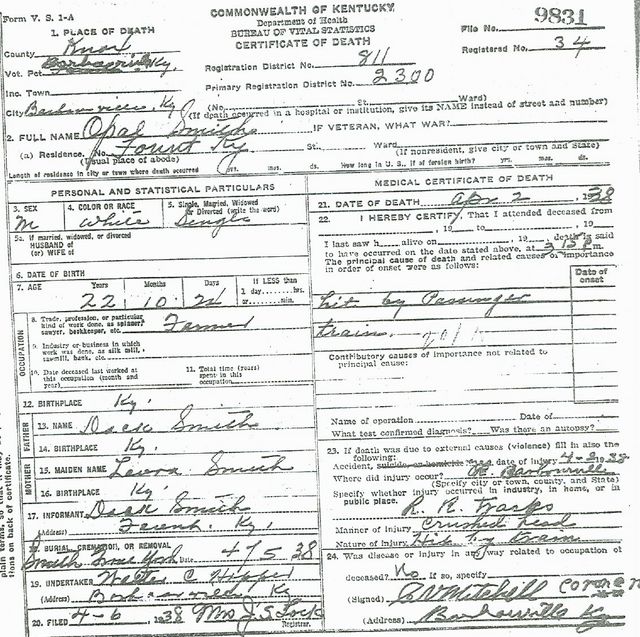 Form V. S. 1-A
COMMONWEALTH OF KENTUCKY
Department of Health
BUREAU OF VITAL STATISTICS
CERTIFICATE OF DEATH
File No. 9831
Registered No. 34
1. PLACE OF DEATH
County Knox
Vot. Pct Barbourville Ky.
Inc. Town
City Barbourville, Ky
Registration District No. 811
Primary Registration District No. 2300
(No. St. Ward)
(If death occurred in a hospital or institution, give its NAME instead of street and number)
2. FULL NAME Opal Smith
IF VETERAN, WHAT WAR?
(a) Residence. No. Fount Ky St., Ward
(Usual place of abode) (If nonresident, give city or town and State)
Length of residence in city or town where death occurred yrs. mos. ds. How long in U. S., if of foreign birth? yrs. mos. ds.
PERSONAL AND STATISTICAL PARTICULARS
3. SEX M
4. COLOR OR RACE White
5. Single, Married, Widowed or Divorced (write the word) Single
5a. If married, widowed, or divorced
HUSBAND of
(or) WIFE of
6. DATE OF BIRTH
7. AGE Years Months Days If LESS than
1 day, hrs.
or min.
22 10
OCCUPATION
8. Trade, profession, or particular
kind of work done, as spinner,
sawyer, bookkeeper, etc. Farmer
9. Industry or business in which
work was done, as silk mill,
sawmill, bank, etc.
10. Date deceased last worked at
this occupation (month and
year)
11. Total time (years)
spent in this
occupation
12. BIRTHPLACE Ky.
FATHER
13. NAME Dack Smith
14. BIRTHPLACE Ky.
MOTHER
15. MAIDEN NAME Smith
16. BIRTHPLACE Ky
17. INFORMANT Dack Smith
(Address) Ky.
18. BURIAL, CREMATION, OR REMOVAL
Smith Date 4/5 38
19. UNDERTAKER C Hopper
(Address) Barbourville Ky
20. FILED 4-6, 1938 Mrs J. S. Lock
Registrar.
MEDICAL CERTIFICATE OF DEATH
21. DATE OF DEATH Apr 2, 1938
22. I HEREBY CERTIFY, That I attended deceased from
, 19 to , 19
I last saw h alive on , 19 death is said
to have occurred on the date stated above, at 3 15 P m.
The principal cause of death and related causes of importance
in order of onset were as follows:
Date of
onset
hit by Passenger
train.
Contributory causes of importance not related to
principal cause:
Name of operation Date of
What test confirmed diagnosis? Was there an autopsy?
23. If death was due to external causes (violence) fill in also the
following:
Accident, suicide, or homicide date of injury 4-2-38
Where did injury occur? Barbourville
(Specify city or town, county, and State)
Specify whether injury occurred in industry, in home, or in
public place.
R. R. Tracks
Manner of injury Crushed head
Nature of injury Hit by train
24. Was disease or injury in any way related to occupation of
deceased? No If so, specify
(Signed) Mitchell coroner
(Address) Barbourville Ky
plain terms, so that
tions on back of certificate.